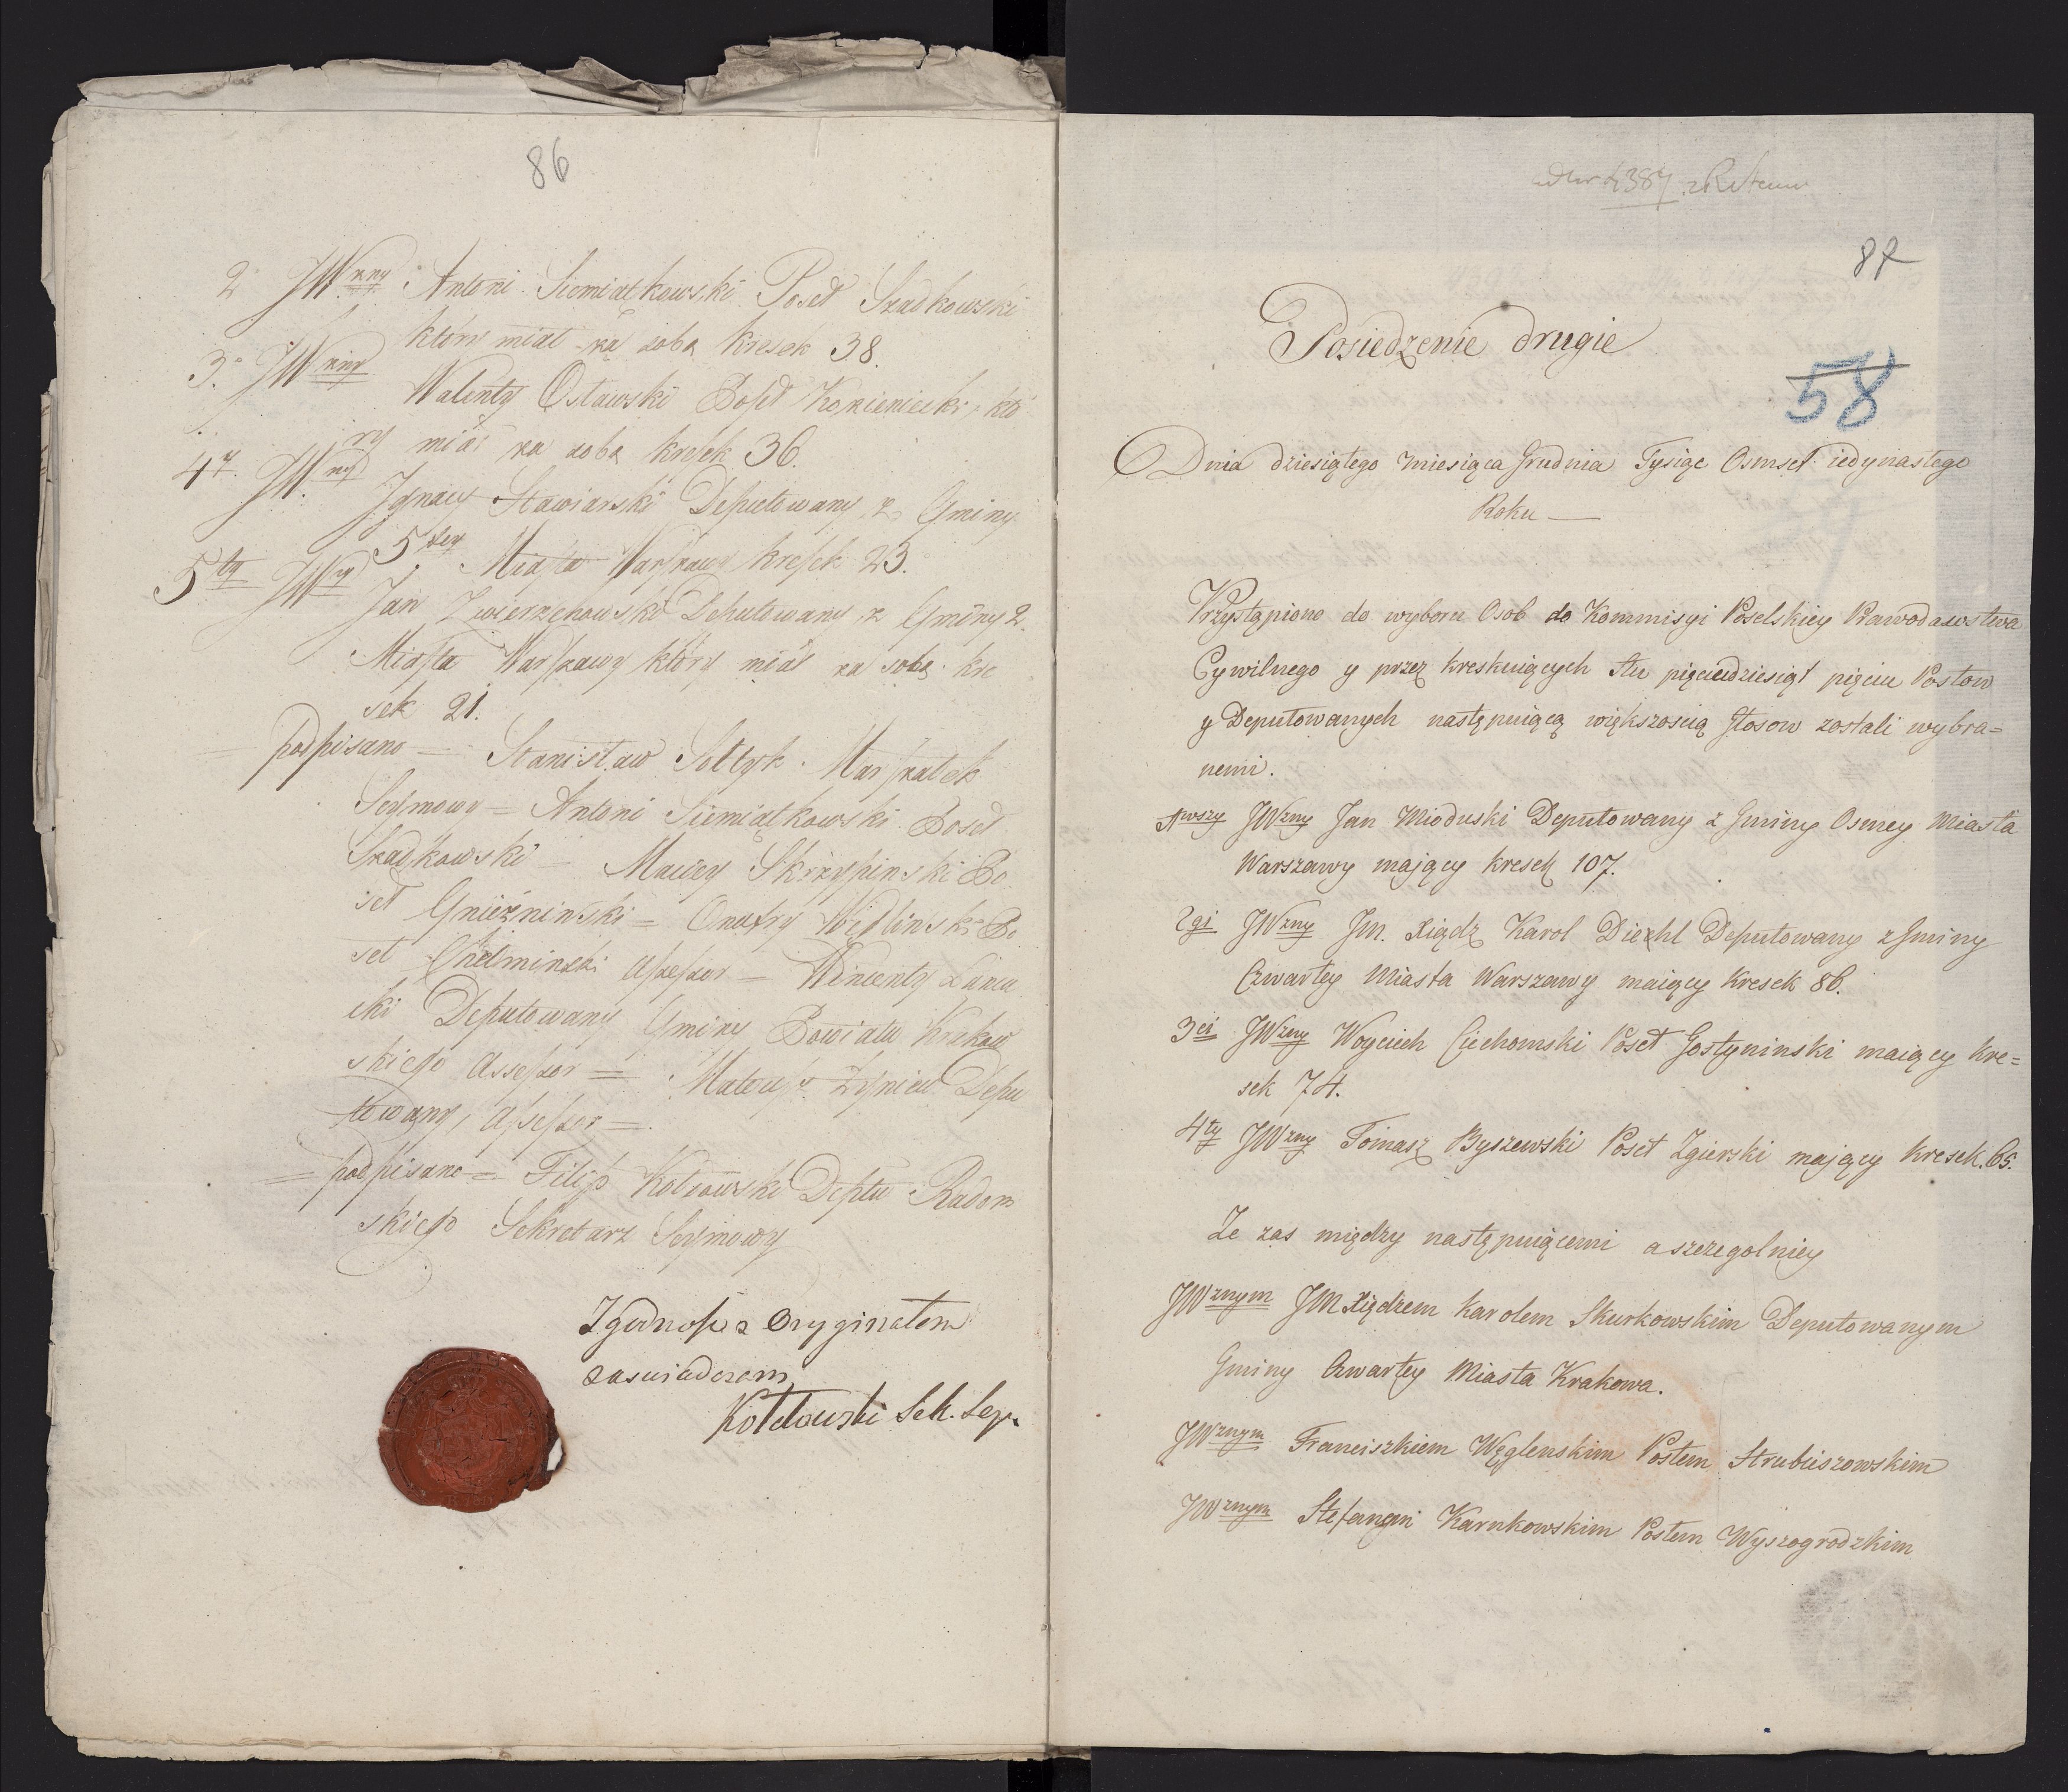 86
2° JW.zny Antoni Siemiatkowski Poseł Szadkowski
który miał za sobą kresek 38.
3° JWzny Walenty Osławski Poseł Kozieniecki, któ
ry miał za sobą kresek 36.
4y JW.ny Jgnacy Stawiarski Deputowany z Gminy
5tey Miasta Warszawy kresek 23.
5ty JWny Jan Zwierzchowski Deputowany z Gminy 2.
Miasta Warszawy który miał za sobą kre
sek 21.
= podpisano = Stanisław Sołtyk Marszałek
Seymowy = Antoni Siemiątkowski Poseł
Szadkowski = Maciey Skrzypinski Po
seł Gnieźninski = Onufry Widlinski Po
seł Chełminski Assessor = Wincenty Łańcu
cki Deputowany Gminy Powiatu Krakow
skiego Assessor = Mateusz Żyniew Depu
towany, Assessor =
= podpisano = Filip Kotkowski Deptu Radom
skiego Sekretarz Seymowy
Zgodność z Oryginałem
zaswiadczam
Sek. Sey.
4384
87
Posiedzenie drugie
58
Dnia dziesiątego miesiąca Grudnia Tysiąc Osmset iedynastego
Roku —
Przystąpiono do wyboru Osob do Kommisyi Poselskiey Prawodawstwa
Cywilnego y przez kreskuiących stu pięciudziesiąt pięciu Posłow
y Deputowanych następuiącą większoscią głosow zostali wybra=
nemi.
1wszy JWzny Jan Mioduski Deputowany z Gminy Osmey Miasta
Warszawy mający kresek 107.
2gi JWzny Jm. Xiądz Karol Diehl Deputowany z Gminy
Czwartey Miasta Warszawy maiący kresek 86.
3ci JWzny Woyciech Ciechomski Poseł Gostyninski maiący kre=
sek 74.
4ty JWzny Tomasz Byszewski Poseł Zgierski mający kresek 65.
Ze zas między następuiącemi a szczegolniey
JWznym JM Xiędzem Karolem Skurkowskim Deputowanym
Gminy Czwartey Miasta Krakowa.
JWznym Franciszkiem Węglenskim Posłem Hrubieszowskim
JWznym Stefanem Karnkowskim Posłem Wyszogrodzkim